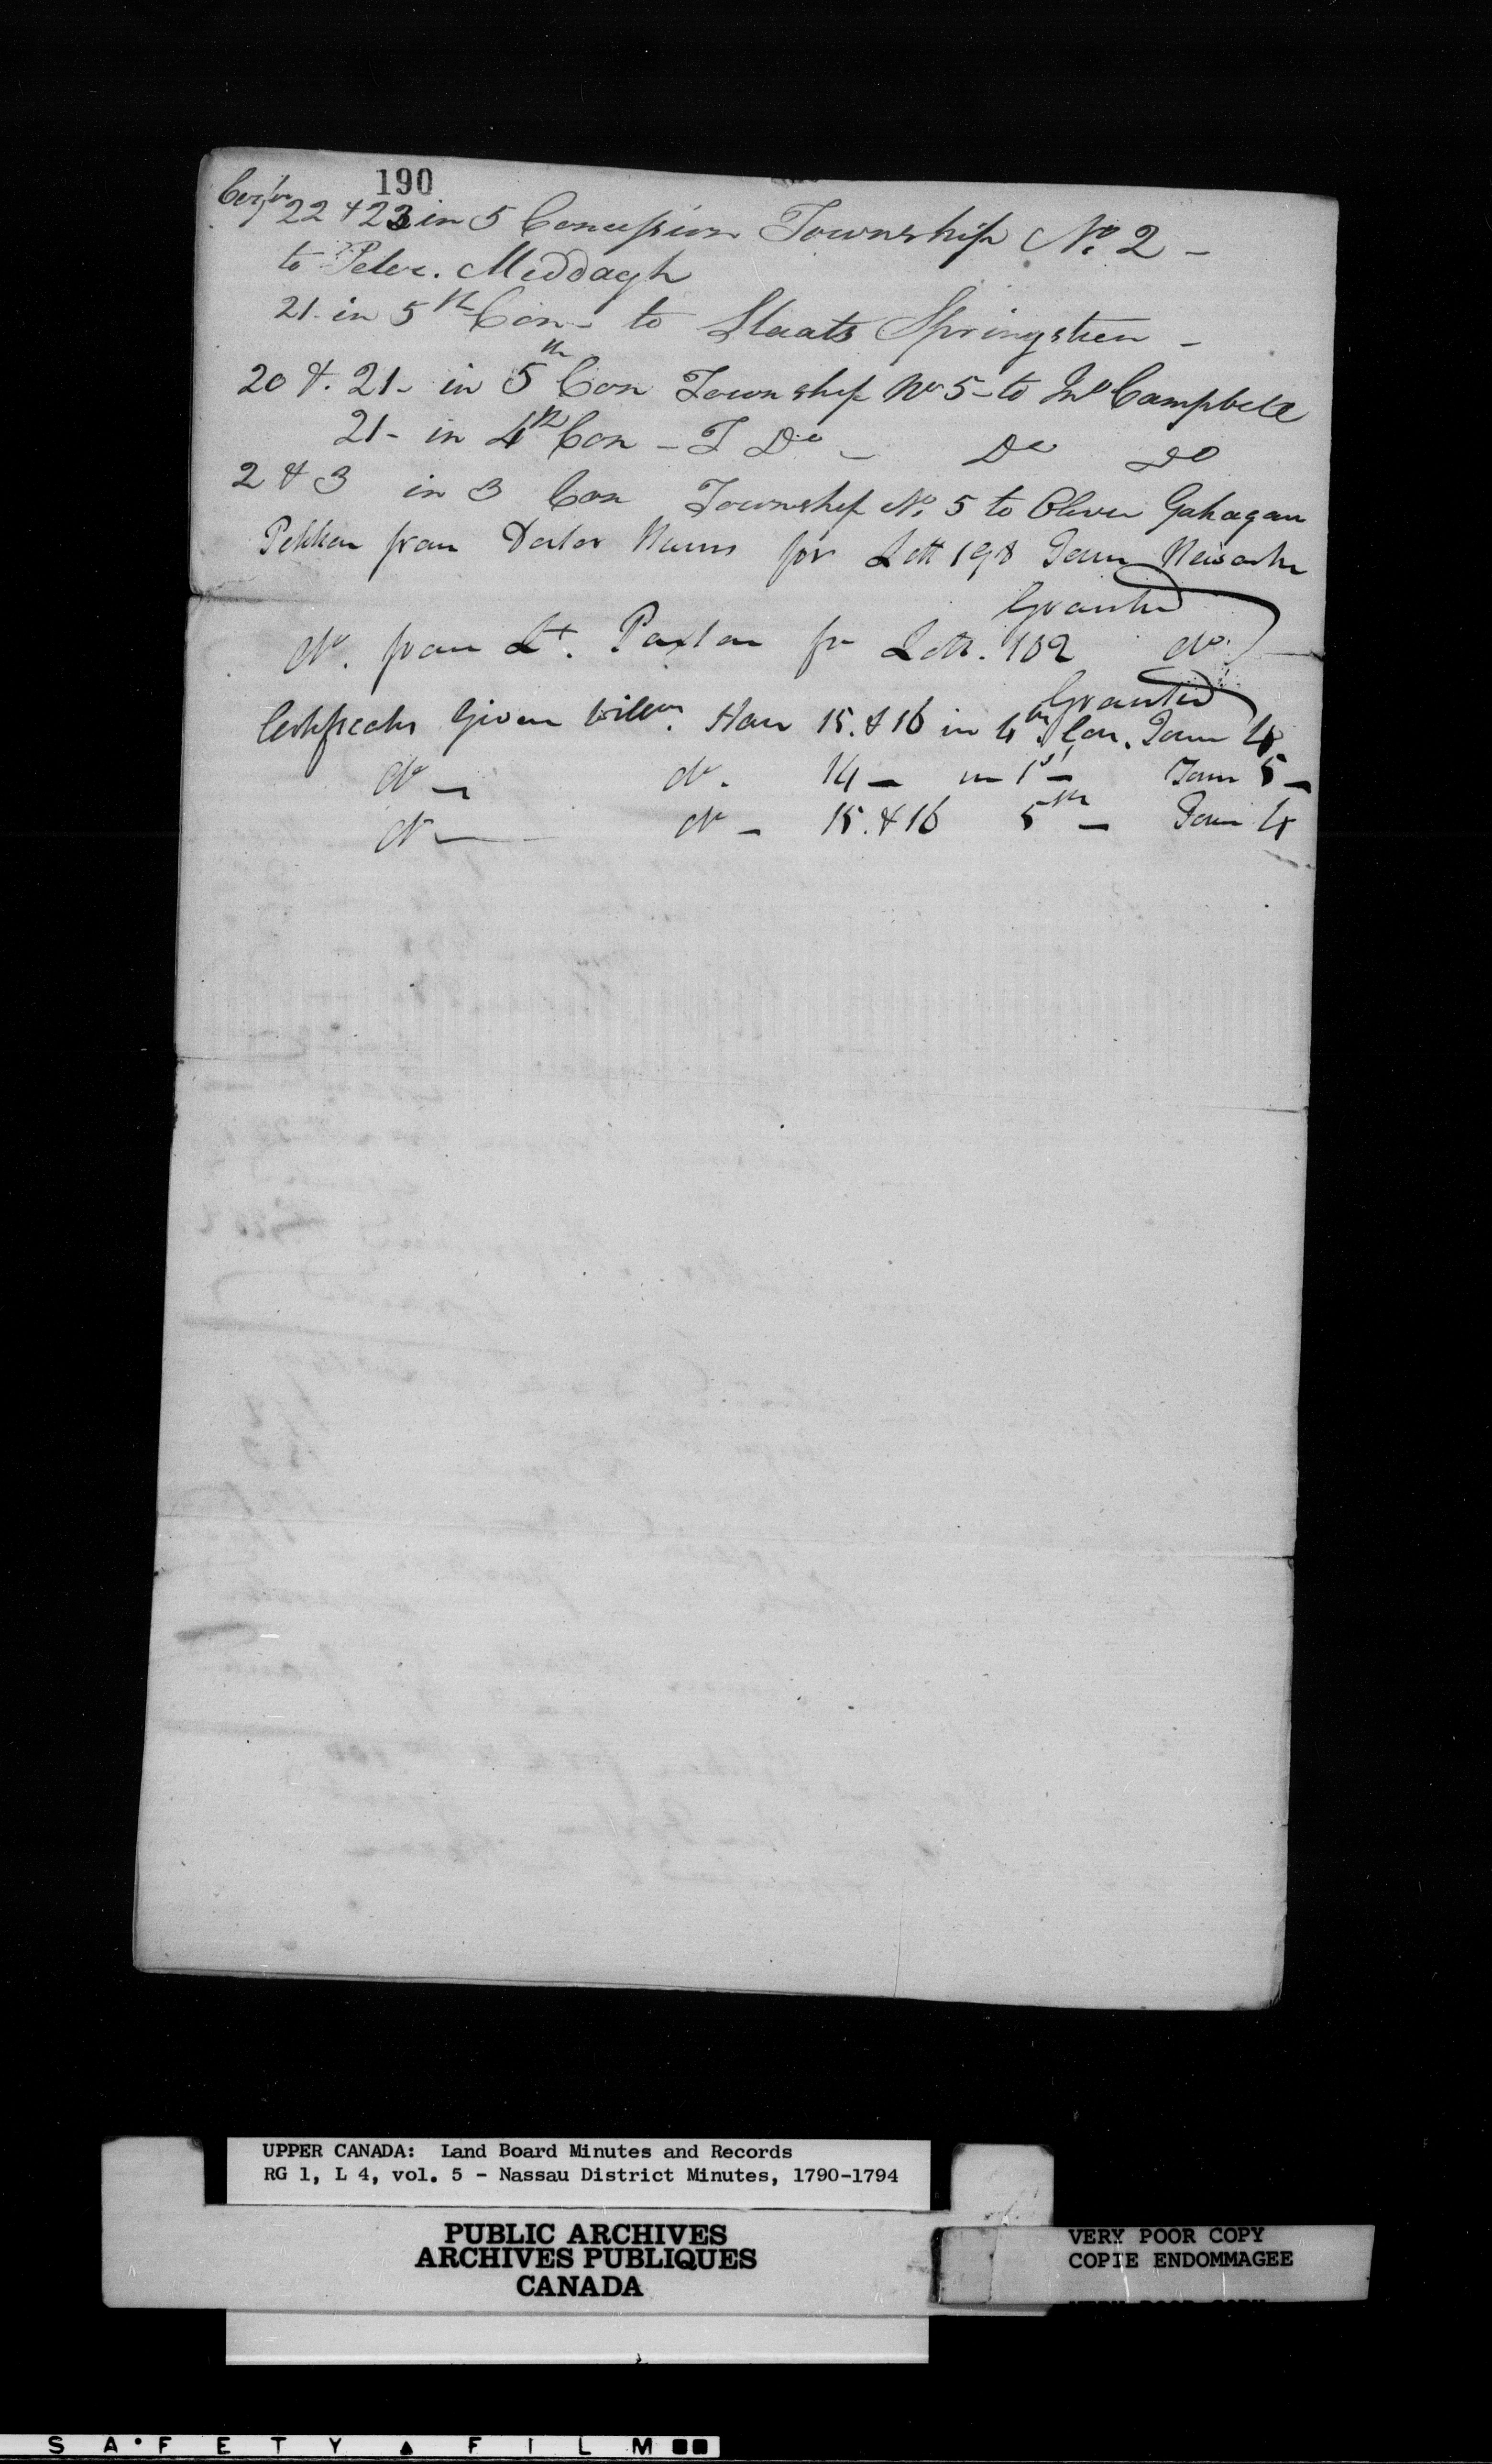 190
22 & 23 in 5 Concession Township No. 2 -
to Peter. Middagh
21 in 5th Con - to Staats Springsteen -
20 & 21 - in 5th Con Township No 5 - to Jno Campbell
21 - in 4th Con - T Do - Do Do
2 & 3 in 3 Con Township No. 5 to Oliver Gahagan
Petition from Doctor for Lott 198 Town Newark
Granted
do. from Lt. Paxton for Lott. 102 do.
Granted
Certificate Given Willm. Hare 15. & 16 in 4th Con. Town 4
do - do. 14 - in 1st - Town 5 -
do - do - 15. & 16 5th - Town 4
UPPER CANADA: Land Board Minutes and Records
RG 1, L 4, vol. 5 - Nassau District Minutes, 1790-1794
PUBLIC ARCHIVES
ARCHIVES PUBLIQUES
CANADA
VERY POOR COPY
COPIE ENDOMMAGEE
SAFETY FILM